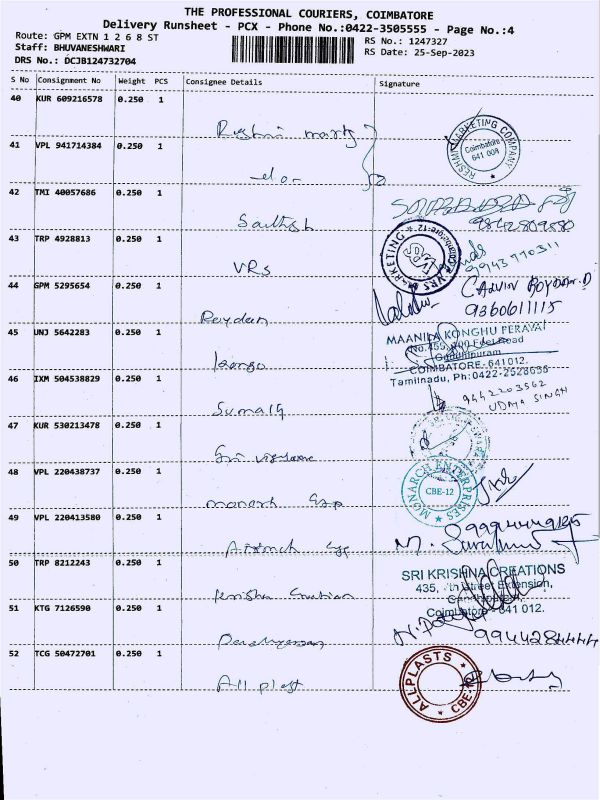 THE PROFESSIONAL COURIERS, COIMBATORE
Delivery Runsheet - PCX - Phone No.:0422-3505555 - Page No.:4
Route: GPM EXTN 1 2 6 8 ST
Staff: BHUVANESHWARI
DRS No.: DCJB124732704
RS No.: 1247327
RS Date: 25-Sep-2023
S No Consignment No Weight PCS Consignee Details Signature
40 KUR 609216578 0.250 1
RESHMI MARKETING COMPANY
Coimbatore
641 004
41 VPL 941714384 0.250 1
42 TMI 40057686 0.250 1
Sathish
9842809580
43 TRP 4928813 0.250 1
VRS
VRS MARKETING
99943770311
44 GPM 5295654 0.250 1
Roydan
9360611115
45 UNJ 5642283 0.250 1
MAANILA KONGHU PERAVAI
Gandhipuram
COIMBATORE-641012.
Tamilnadu, Ph:0422-2528635
46 IXM 504538829 0.250 1
9442203562
UDAYA SINGH
47 KUR 530213478 0.250 1
Sri
48 VPL 220438737 0.250 1
MONARCH ENTERPRISES
CBE-12
49 VPL 220413580 0.250 1
M.
50 TRP 8212243 0.250 1
SRI KRISHNA CREATIONS
435, Street Extension,
Coimbatore - 641 012.
51 KTG 7126590 0.250 1
9944284444
52 TCG 50472701 0.250 1
All plast
ALLPLASTS
CBE-12